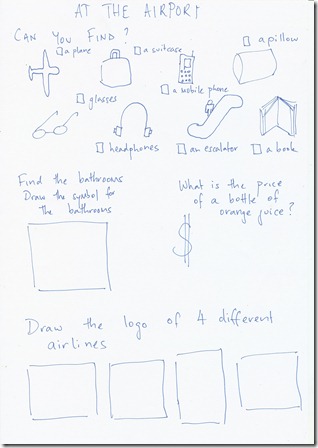 AT THE AIRPORT
CAN YOU FIND?
a plane
a suitcase
a pillow
glasses
a mobile phone
headphones
an escalator
a book
Find the bathrooms
Draw the symbol for
the bathrooms
What is the price
of a bottle of
orange juice?
$
Draw the logo of 4 different
airlines